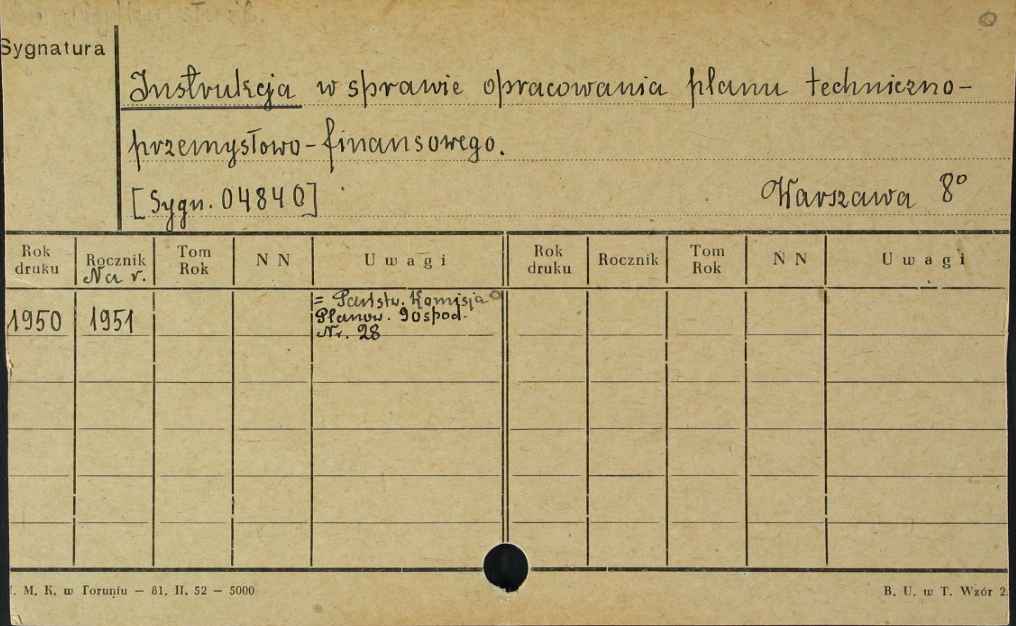 Sygnatura
Instrukcja w sprawie opracowania planu techniczno-
przemysłowo-finansowego.
[Sygn. 04840]
Warszawa 8°
Rok druku Rocznik Tom Rok N N Uwagi Rok druku Rocznik Tom Rok N N Uwagi
Na r.
1950 1951 = Państw. Komisja
Planow. Gospod.
Nr. 28
. M. K. w Toruniu — 81. II. 52 — 5000
B. U. w T. Wzór 2